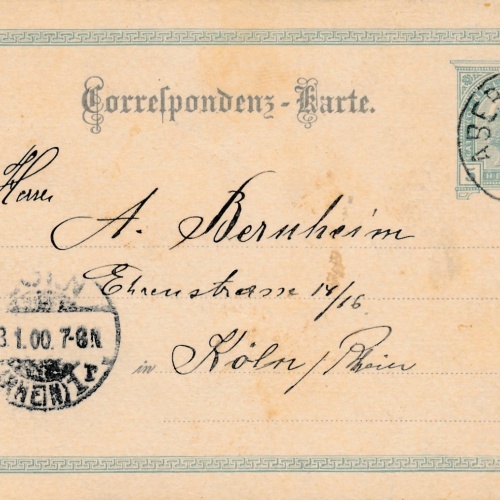 Correspondenz-Karte.
ABER
Herrn
A. Bernheim
Ehrenstrasse 14/16
in Köln / Rhein
3.1.00. 7-8N
(RHEIN) 1r.